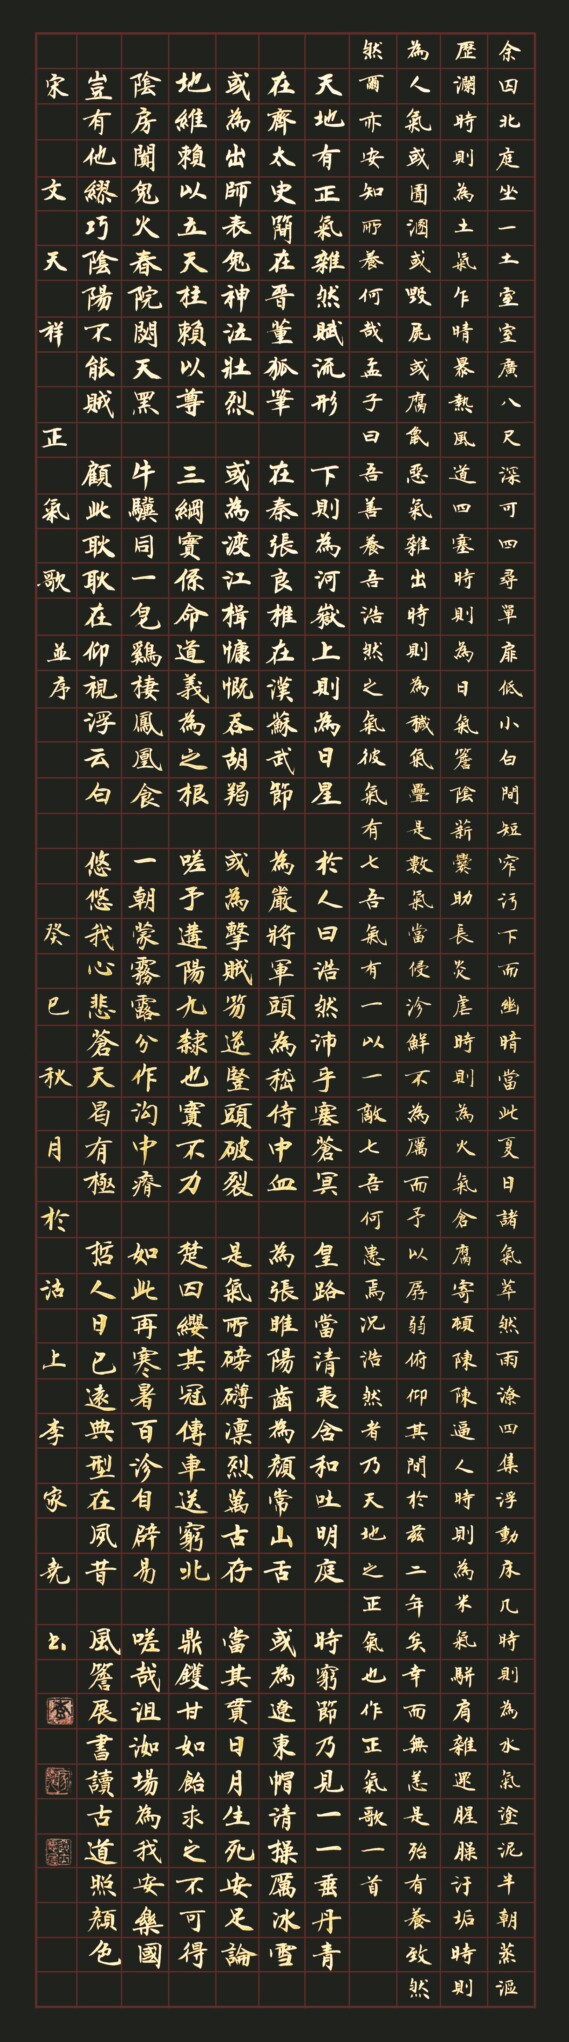 余囚北庭坐一土室室廣八尺深可四尋單扉低小白間短窄污下而幽暗當此夏日諸氣萃然雨潦四集浮動床几時則為水氣塗泥半朝蒸漚
歷瀾時則為土氣乍晴暴熱風道四塞時則為日氣簷陰薪爨助長炎虐時則為火氣倉腐寄頓陳陳逼人時則為米氣駢肩雜遝腥臊汙垢時則
為人氣或圊溷或毀屍或腐鼠惡氣雜出時則為穢氣疊是數氣當侵沴鮮不為厲而予以孱弱俯仰其間於茲二年矣幸而無恙是殆有養致然
然爾亦安知所養何哉孟子曰吾善養吾浩然之氣彼氣有七吾氣有一以一敵七吾何患焉況浩然者乃天地之正氣也作正氣歌一首
天地有正氣雜然賦流形 下則為河嶽上則為日星 於人曰浩然沛乎塞蒼冥 皇路當清夷含和吐明庭 時窮節乃見一一垂丹青
在齊太史簡在晉董狐筆 在秦張良椎在漢蘇武節 為嚴將軍頭為嵇侍中血 為張睢陽齒為顏常山舌 或為遼東帽清操厲冰雪
或為出師表鬼神泣壯烈 或為渡江楫慷慨吞胡羯 或為擊賊笏逆豎頭破裂 是氣所磅礴凜烈萬古存 當其貫日月生死安足論
地維賴以立天柱賴以尊 三綱實係命道義為之根 嗟予遘陽九隸也實不力 楚囚纓其冠傳車送窮北 鼎鑊甘如飴求之不可得
陰房闃鬼火春院閟天黑 牛驥同一皂鷄棲鳳凰食 一朝蒙霧露分作沟中瘠 如此再寒暑百沴自辟易 嗟哉沮洳場為我安樂國
豈有他繆巧陰陽不能賊 顧此耿耿在仰視浮云白 悠悠我心悲蒼天曷有極 哲人日已遠典型在夙昔 風簷展書讀古道照顏色
宋文天祥正氣歌並序 癸巳秋月於沽上李家堯書